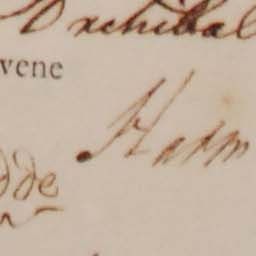 Archibal
vene
Hadm
dde